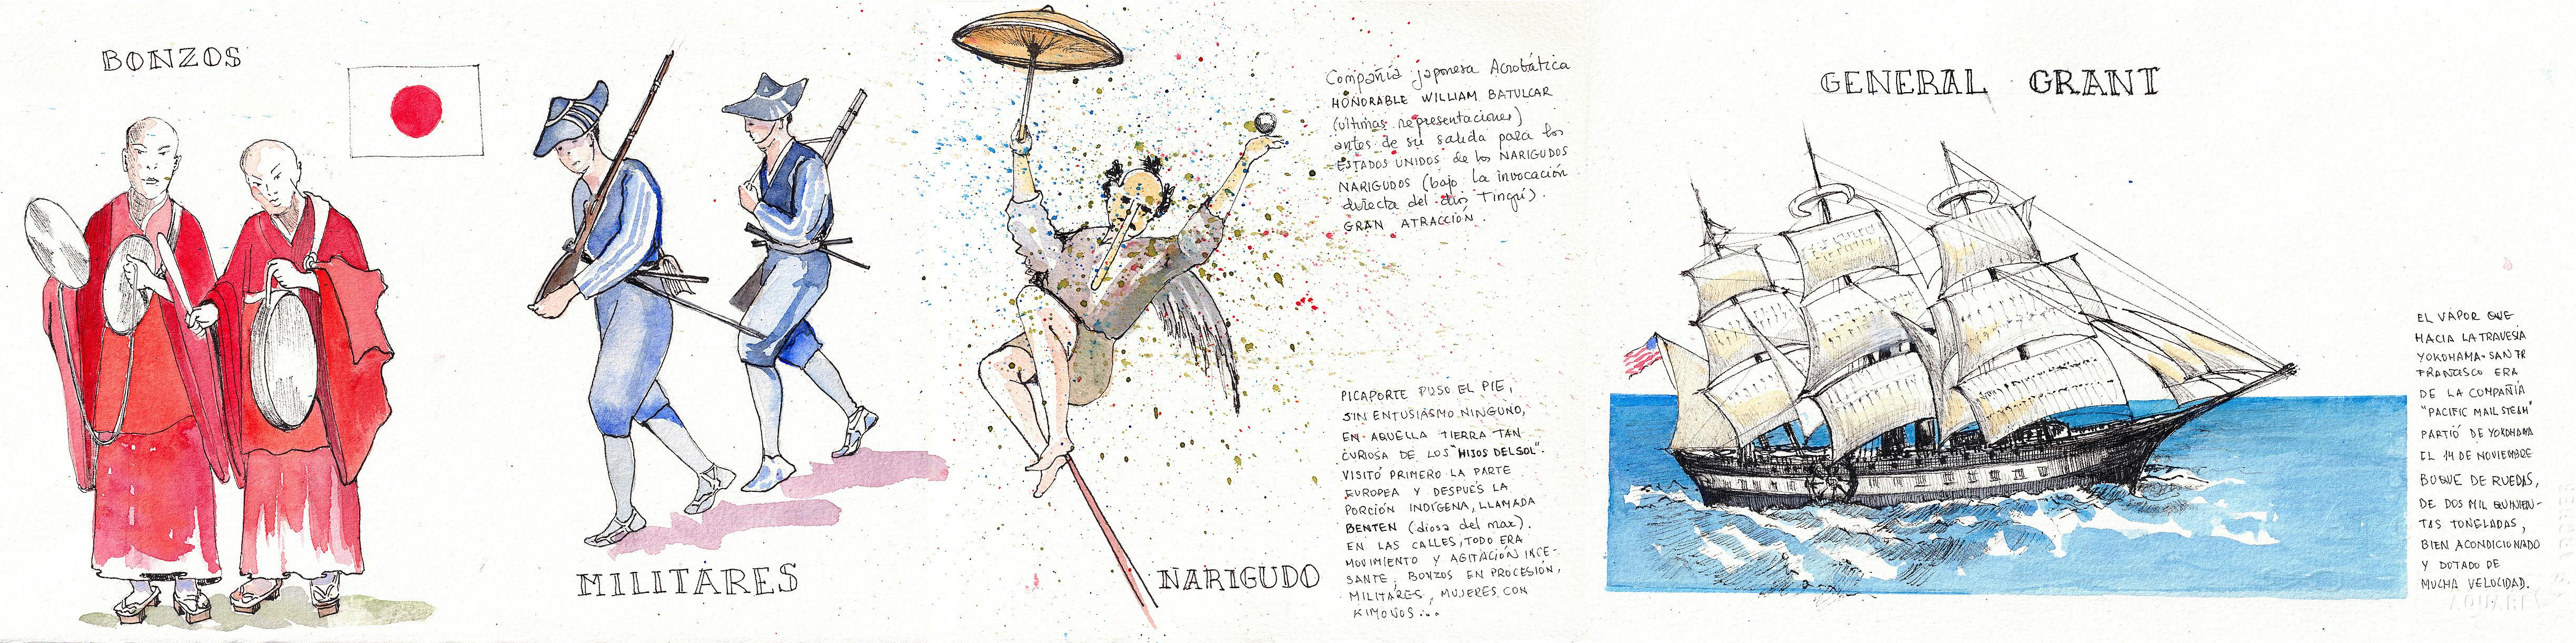 BONZOS
MILITARES
Compañía japonesa Acrobática
HONORABLE WILLIAM BATULCAR
(ultimas representaciones)
antes de su salida para los
ESTADOS UNIDOS de los NARIGUDOS
NARIGUDOS (bajo la invocación
directa del dios Tingú).
GRAN ATRACCIÓN.
PICAPORTE PUSO EL PIE,
SIN ENTUSIASMO NINGUNO,
EN AQUELLA TIERRA TAN
CURIOSA DE LOS "HIJOS DEL SOL".
VISITÓ PRIMERO LA PARTE
EUROPEA Y DESPUÉS LA
PORCIÓN INDÍGENA, LLAMADA
BENTEN (diosa del mar).
EN LAS CALLES, TODO ERA
MOVIMIENTO Y AGITACIÓN INCE-
SANTE; BONZOS EN PROCESIÓN,
MILITARES, MUJERES CON
KIMONOS...
NARIGUDO
GENERAL GRANT
EL VAPOR QUE
HACIA LA TRAVESÍA
YOKOHAMA-SAN FR
FRANCISCO ERA
DE LA COMPAÑÍA
"PACIFIC MAIL STEAM"
PARTIÓ DE YOKOHAMA
EL 14 DE NOVIEMBRE
BUQUE DE RUEDAS,
DE DOS MIL QUINIEN-
TAS TONELADAS,
BIEN ACONDICIONADO
Y DOTADO DE
MUCHA VELOCIDAD.